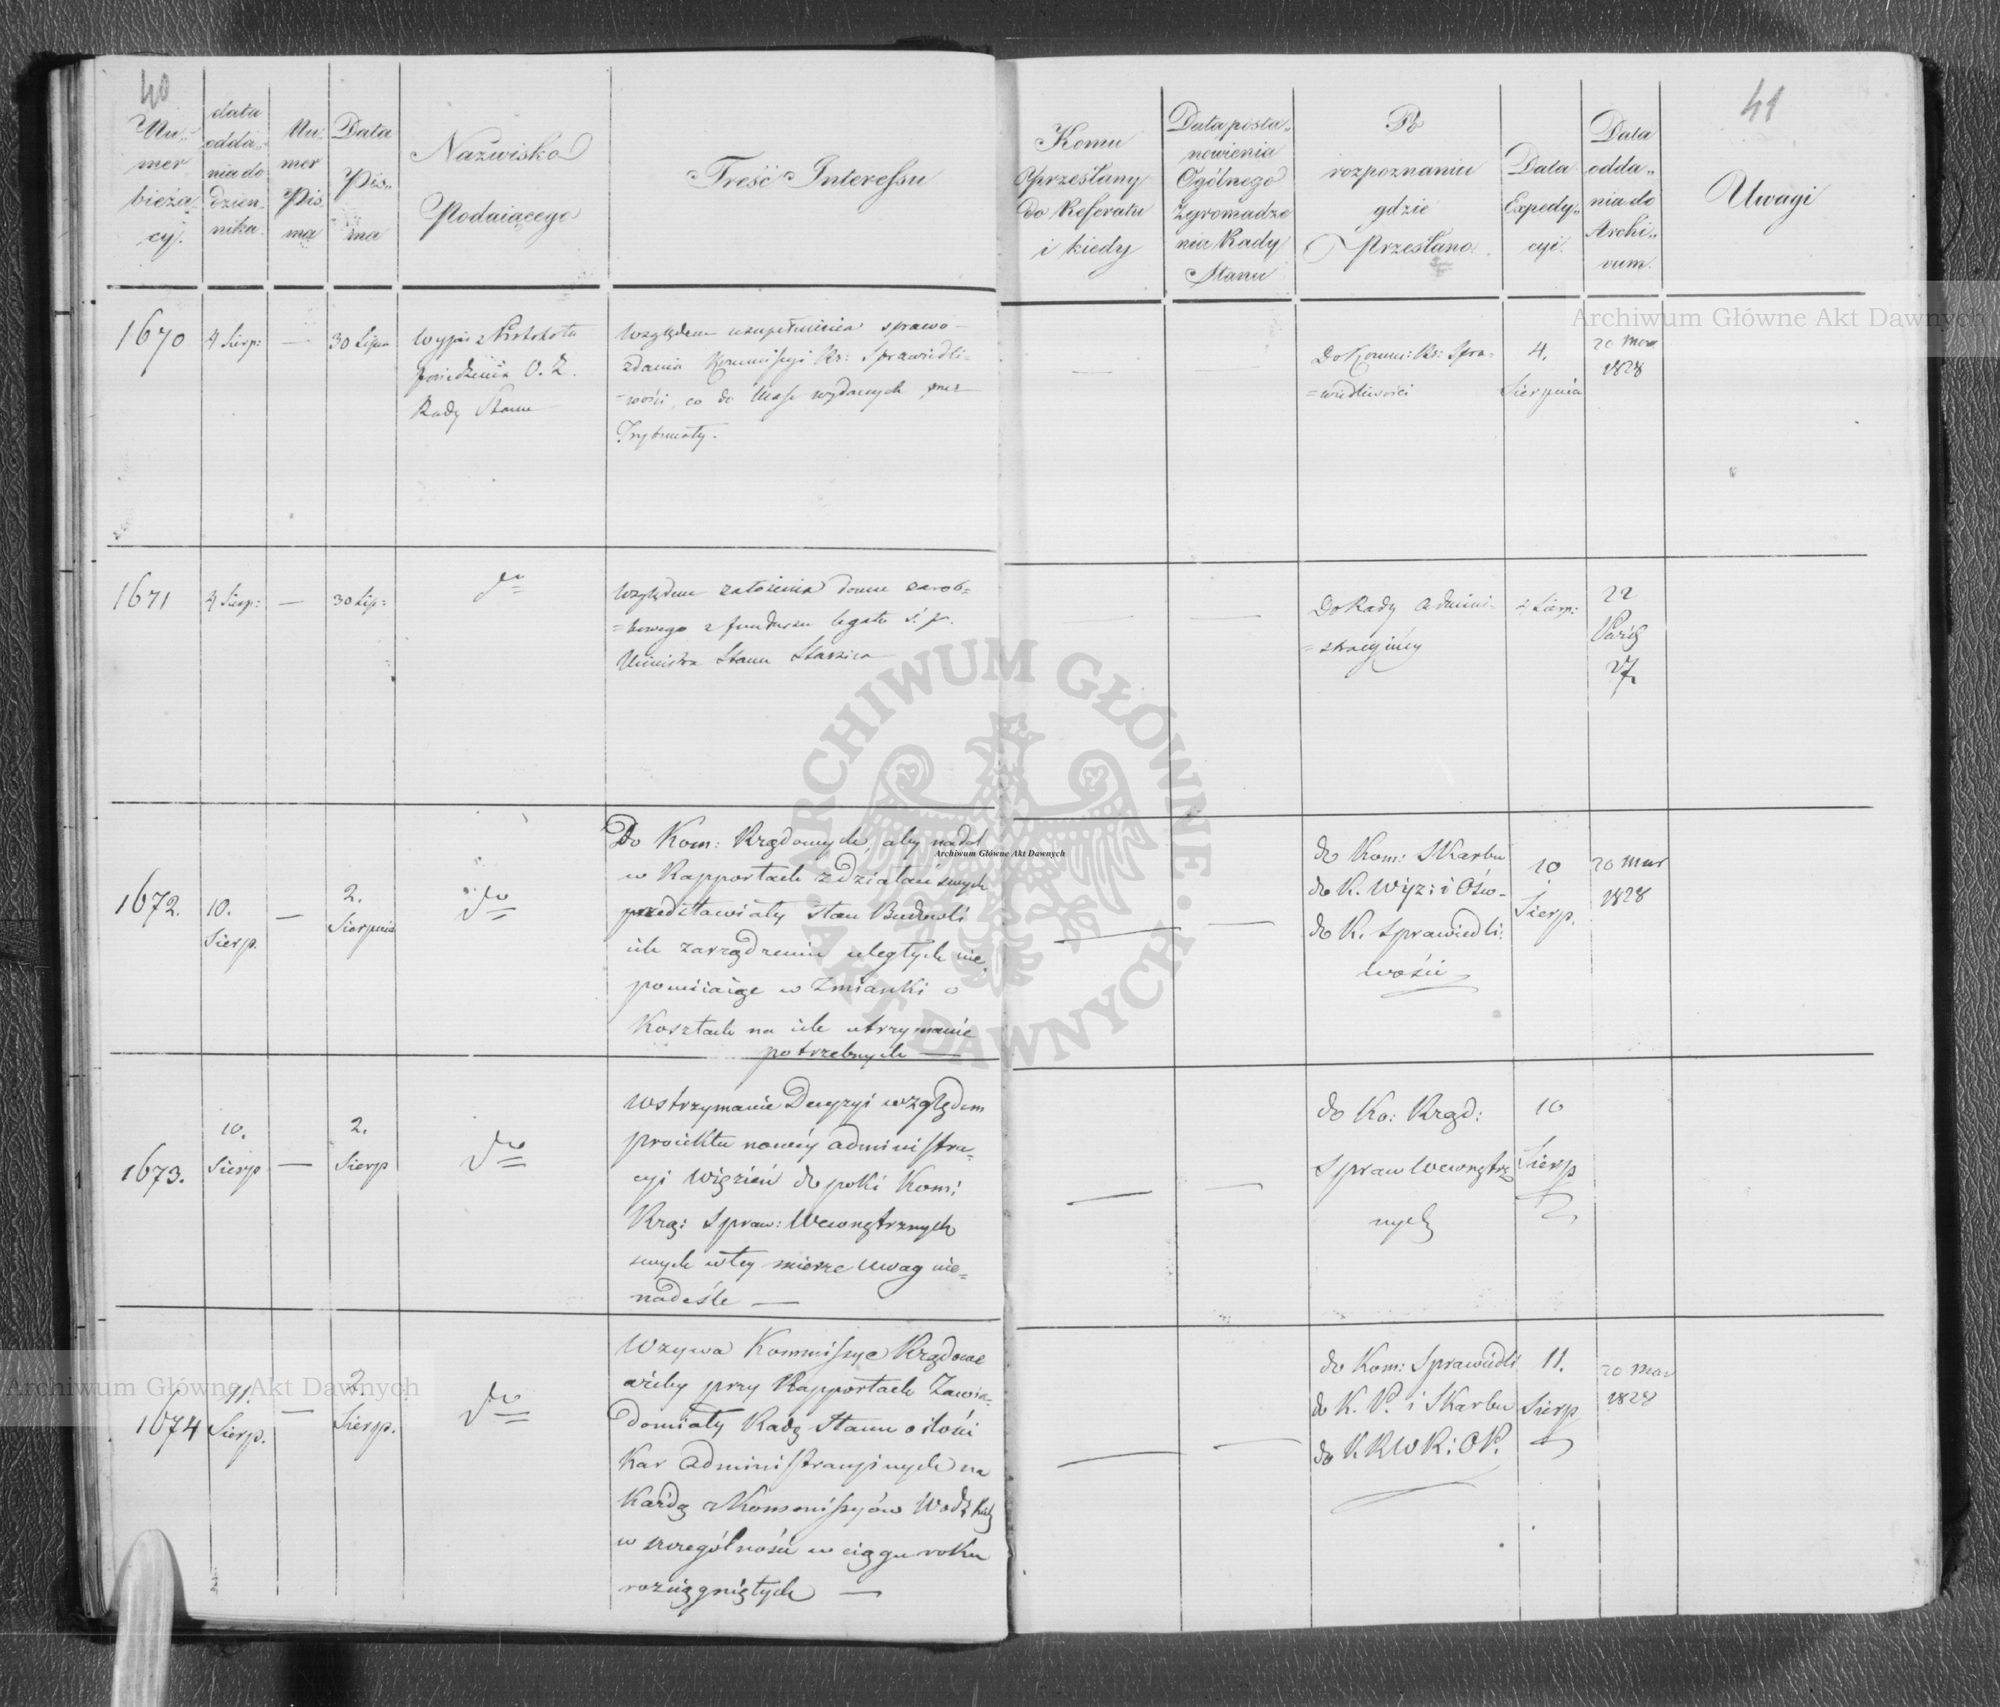 40
Nu„
mer
bieżą„
cy.
data
odda„
nia do
dzien„
nika
Nu
mer
Pis
ma
Data
Pis„
ma
Nazwisko
Podaiącego
Treść Interessu
Komu
Przesłany
do Referatu
i kiedy
Data posta„
nowienia
Ogólnego
Zgromadze
nia Rady
Stanu
Po
rozpoznaniu
gdzie
Przesłano
Data
Expedy„
cyi
Data
odda„
nia do
Archi„
vum.
41
Uwagi
1670
4 Sierp:
—
30 Lipca
Wypis z Protokołu
posiedzenia O. Z.
Rady Stanu
Względem uzupełnienia sprawo-
zdania Kommissyi Rz: Sprawiedli=
=wości, co do Mass wydanych przez
Trybunały.
—
Do Komm: Rz: Spra=
=wiedliwości
4.
Sierpnia
20 Mar
1828
1671
4 Sierp:
—
30 Lip:
do
Względem założenia domu zarob=
=kowego z funduszu legatu ś. p.
Ministra Stanu Staszica
—
—
Do Rady Admini=
=stracyiney
4 Sierp:
22
Paźd
27.
1672.
10.
Sierp.
—
2.
Sierpnia
do
Do Kom: Rządowych, aby nadal
w Rapportach z działań swych
przedstawiały stan Budowli
ich zarządzeniu uległych nie
pomiiaiąc w Zmianki o
Kosztach na ich utrzymanie
potrzebnych —
—
—
do Kom: Skarbu
do K. Wyz: i Ośw-
do K. Sprawiedli:
wości
10
Sierp.
20 Mar
1828
1673.
10.
Sierp
—
2.
Sierp
do
Wstrzymanie Decyzyi względem
proiektu nowéy administra-
cyi Więzień dopoki Kom:
Rzą: Spraw: Wewnętrznych
swych w tey mierze Uwag nie=
nadeśle —
—
—
do Ko: Rząd:
Spraw Wewnętrz
nych
10
Sierp
1674
11.
Sierp.
—
2.
Sierp.
do
Wzywa Kommissye Rządowe
ażeby przy Rapportach Zawia-
domiały Radę Stanu o ilości
Kar Administracyinych na
Każdą z Kommissyów Wodzkich
w szczególności w ciągu roku
rozciągniętych —
—
—
do Kom: Sprawiedli
do K. P. i Skarbu
do K R W R: O P.
11.
Sierp
20 Mar
1828
Archiwum Główne Akt Dawnych
Archiwum Główne Akt Dawnych
Archiwum Główne Akt Dawnych
ARCHIWUM GŁÓWNE · AKT DAWNYCH ·